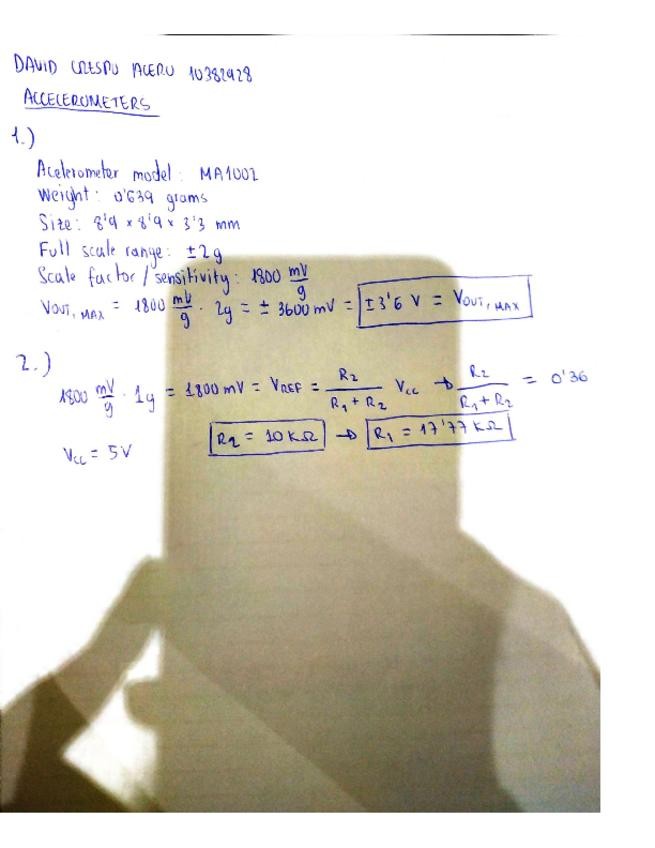 DAVID CRESPO ACERO 10382928
ACCELEROMETERS
1.)
Acelerometer model: MA1002
Weight: 0'639 grams
Size: 8'9 × 8'9 × 3'3 mm
Full scale range: ±2g
Scale factor / sensitivity: 1800 mV/g
VOUT, MAX = 1800 mV/g · 2g = ± 3600 mV = ±3'6 V = VOUT, MAX
2.)
1800 mV/g · 1g = 1800 mV = VREF = R2/(R1 + R2) Vcc → R2/(R1 + R2) = 0'36
Vcc = 5V R2 = 10 KΩ → R1 = 17'77 KΩ